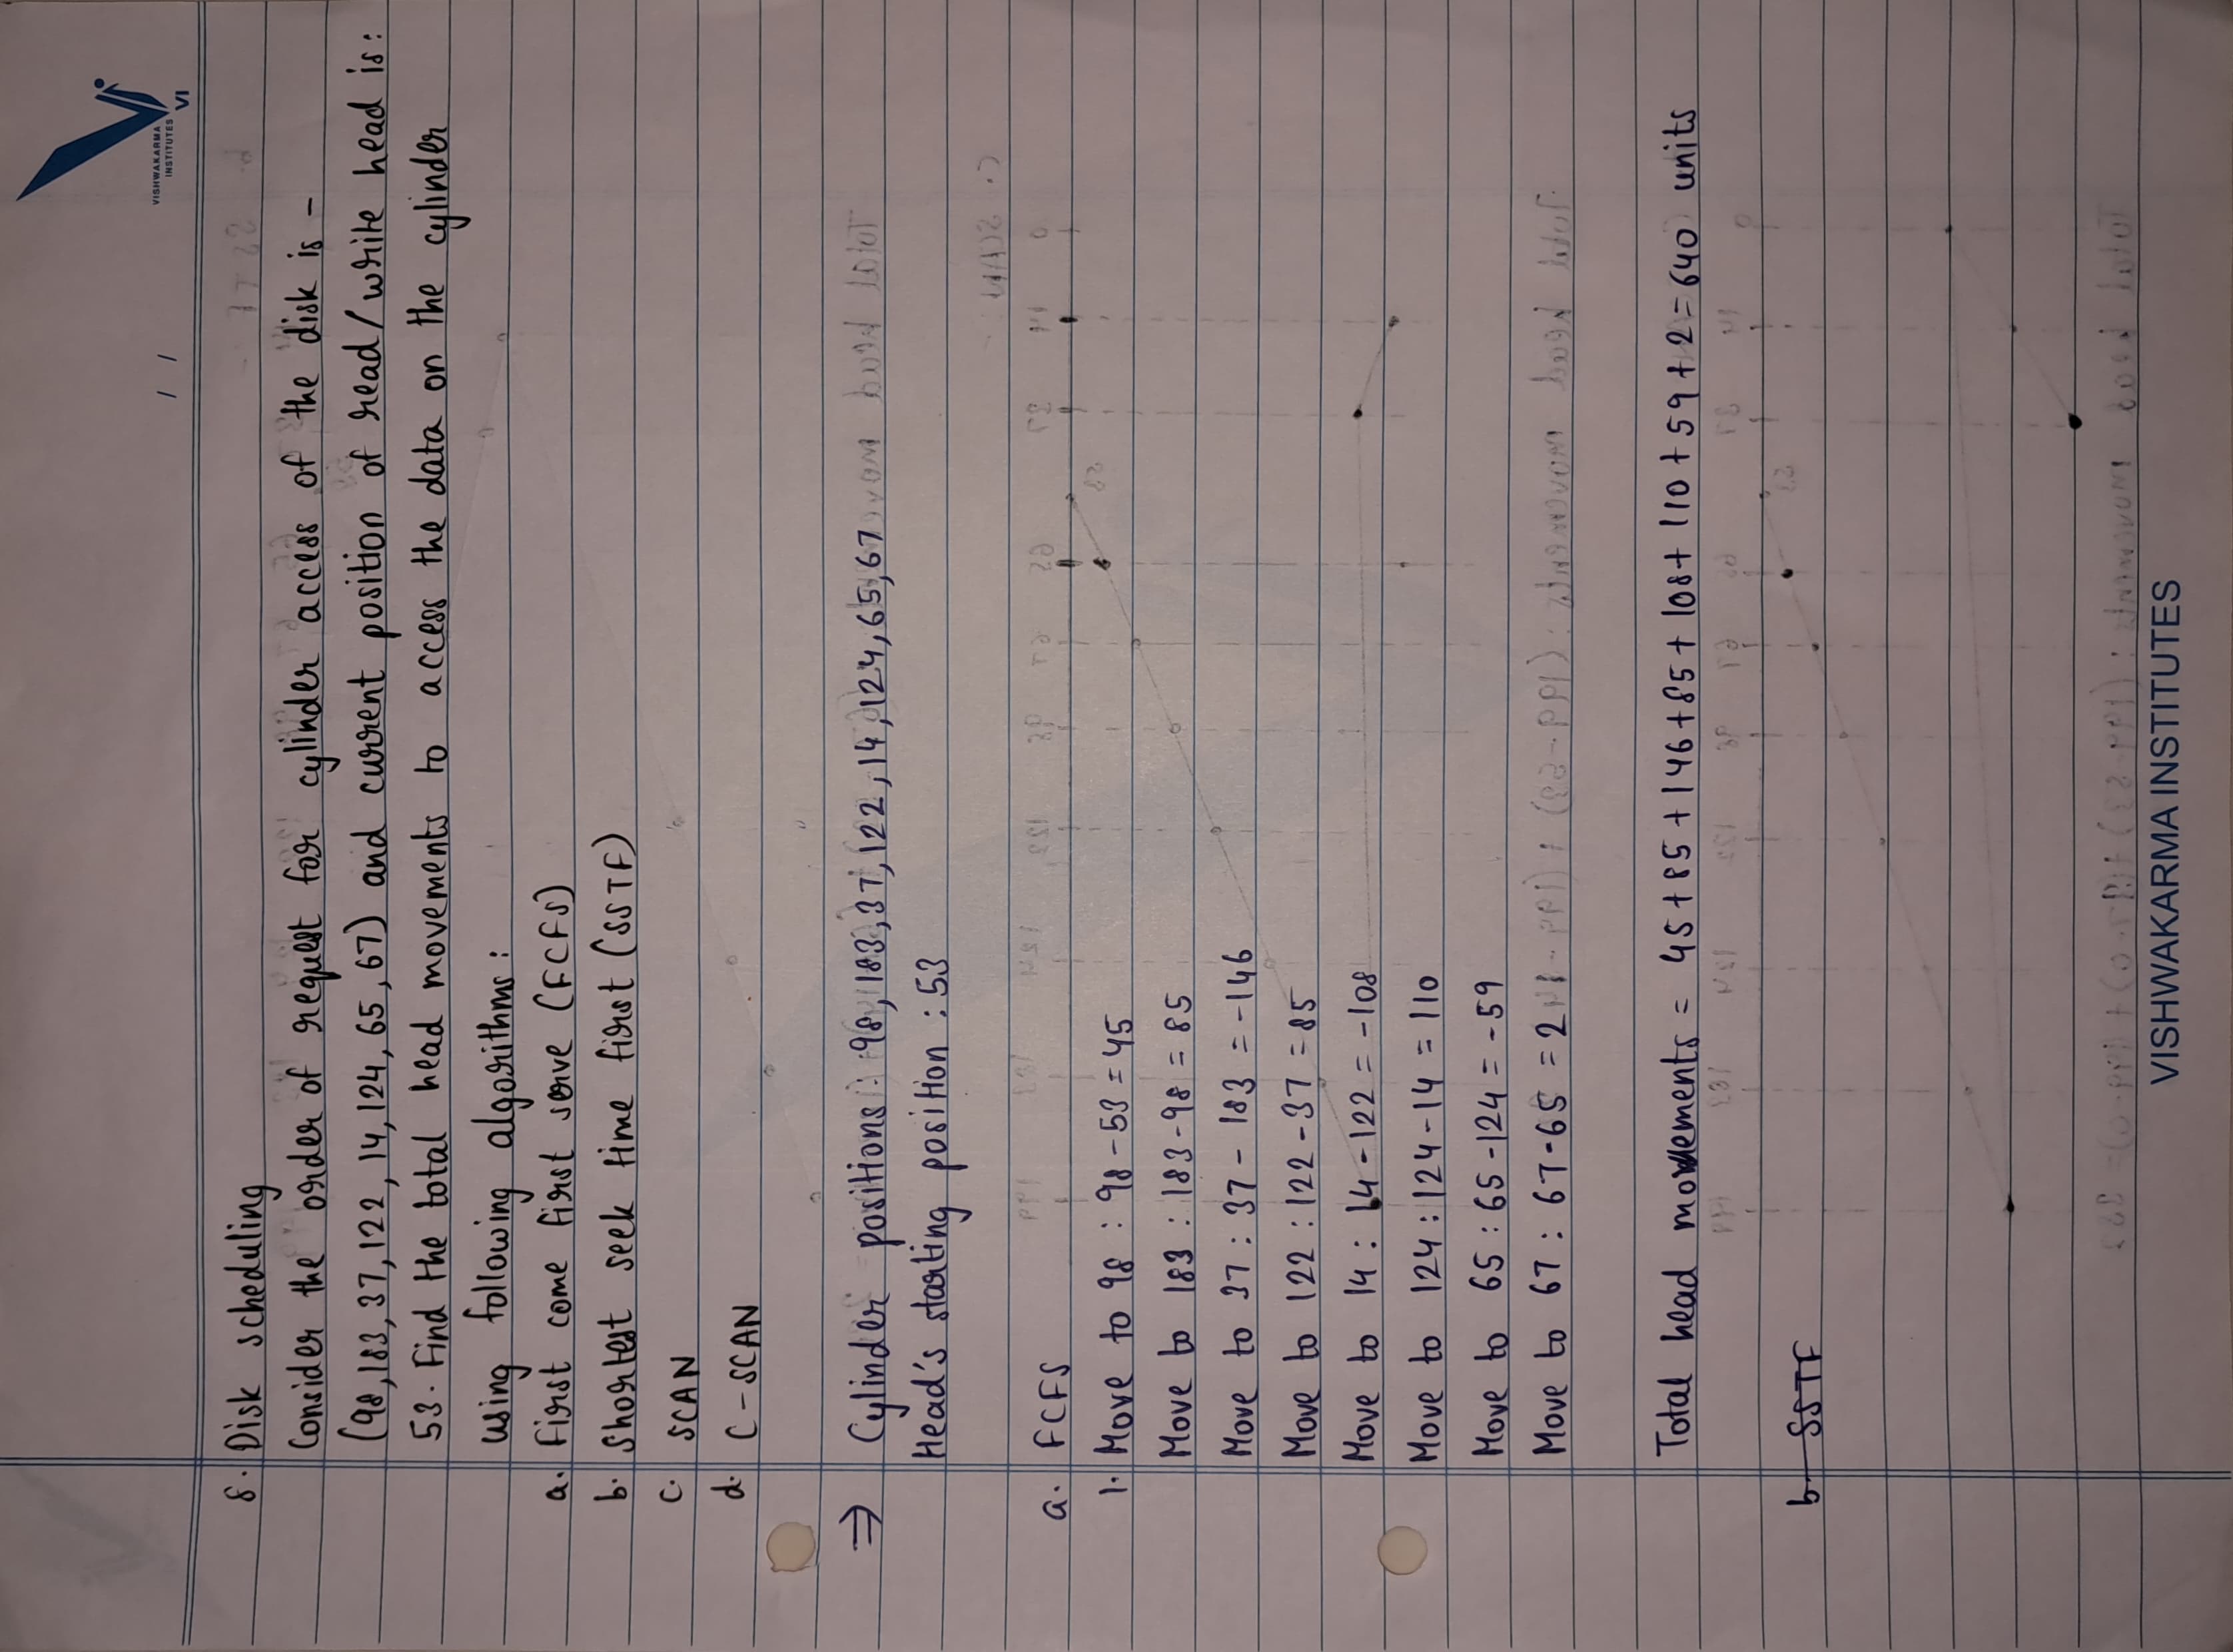 VISHWAKARMA
INSTITUTES
VI
/ /
8. Disk scheduling
Consider the order of request for cylinder access of the disk is -
(98,183,37,122, 14,124, 65,67) and current position of read/write head is:
53. Find the total head movements to access the data on the cylinder
using following algorithms:
a. First come first serve (FCFS)
b. Shortest seek time first (SSTF)
c. SCAN
d. C-SCAN
⇒ Cylinder positions : 98, 183,37,122,14,124,65,67
Head's starting position : 53
a. FCFS
1. Move to 98 : 98-53 = 45
Move to 183 : 183-98 = 85
Move to 37 : 37 - 183 = -146
Move to 122 : 122-37 = 85
Move to 14 : 14-122 = -108
Move to 124 : 124-14 = 110
Move to 65 : 65-124 = -59
Move to 67 : 67-65 = 2
Total head movements = 45+85+146+85+108+110+59+2=640 units
b. SSTF
VISHWAKARMA INSTITUTES